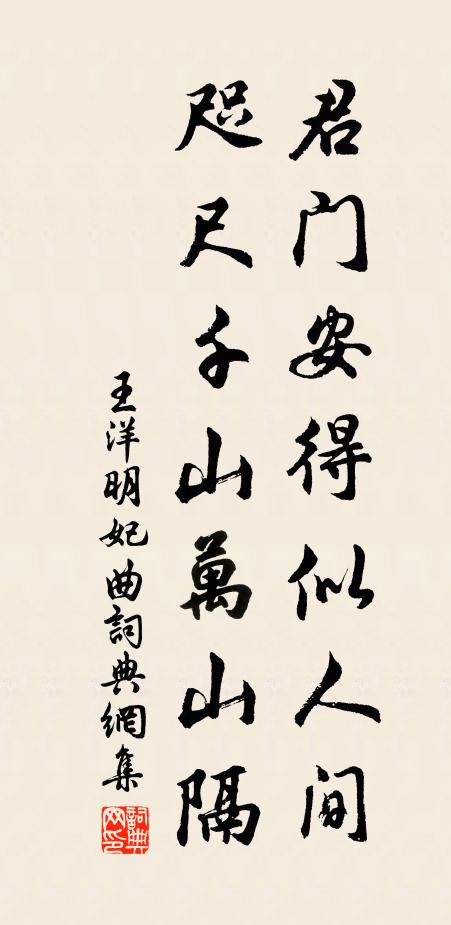 君门安得似人间
咫尺千山萬山隔
王洋明妃曲詞典網集
詞典网印